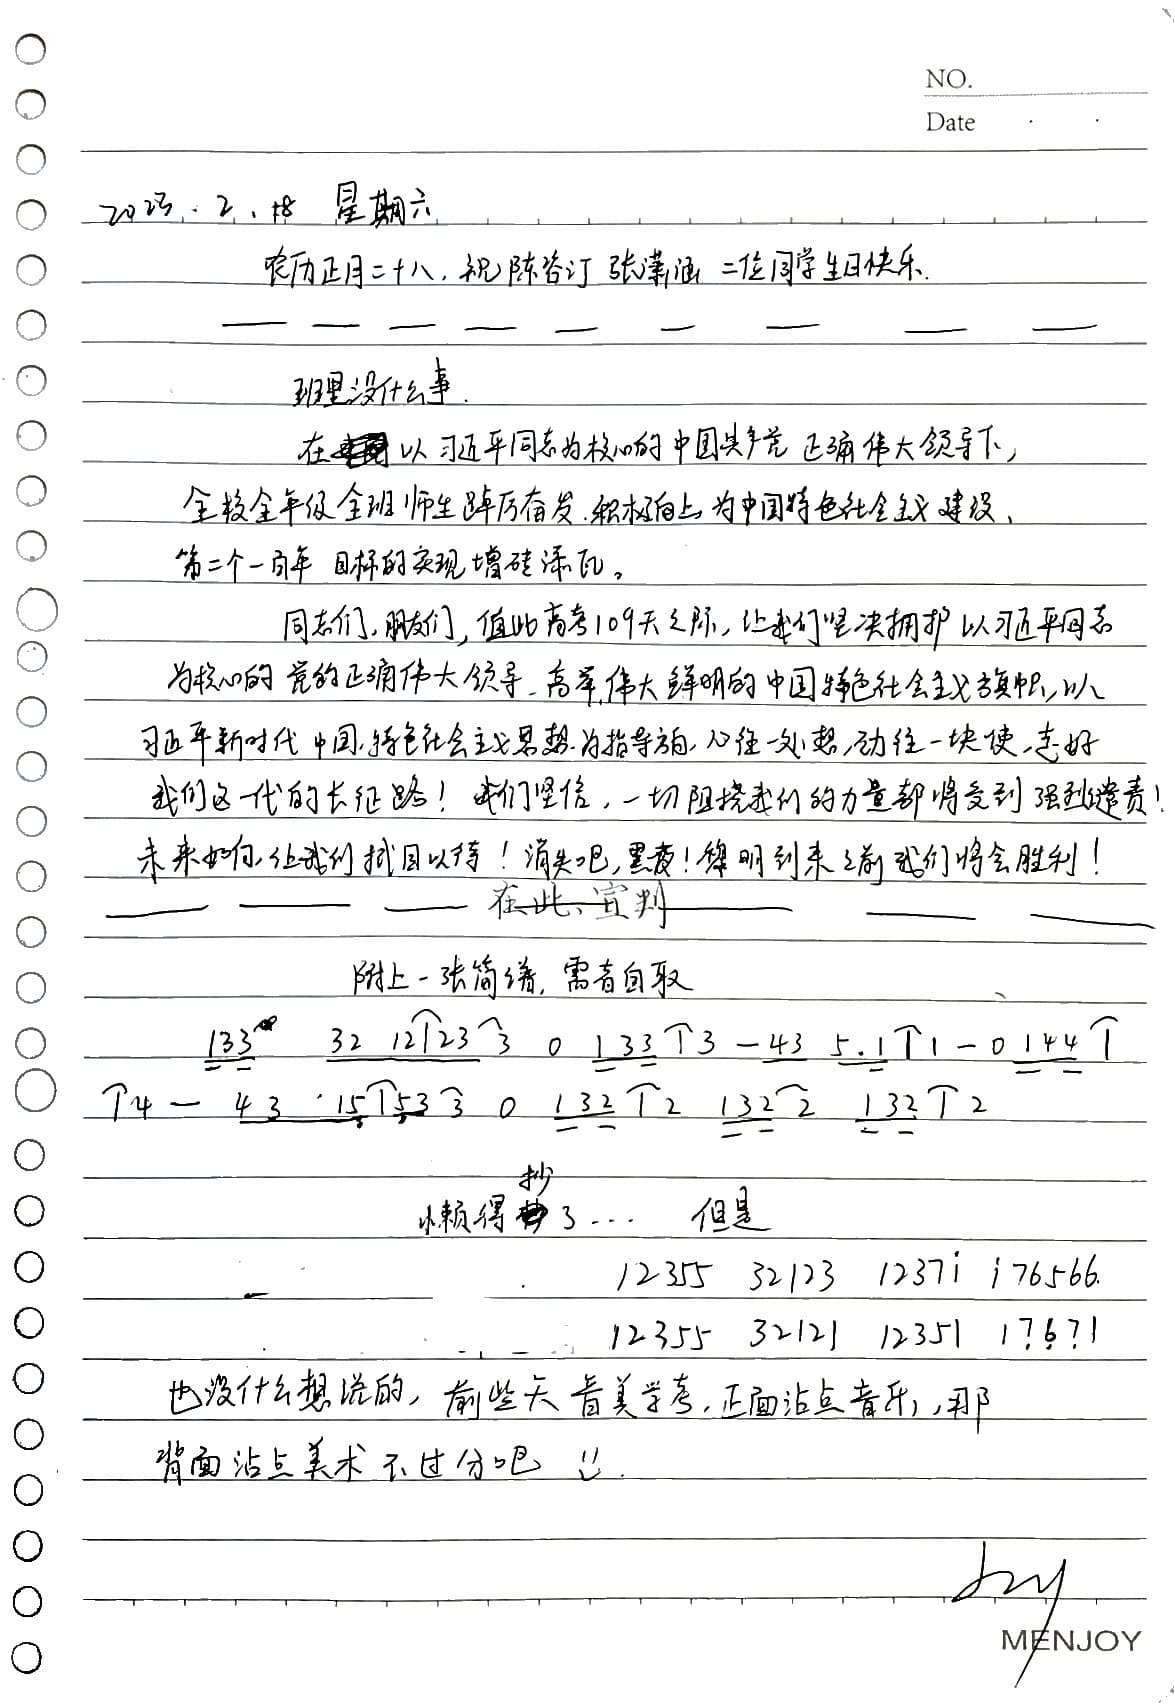 NO.
Date
2023.2.18 星期六
农历正月二十八,祝陈咨订 张潇涵 二位同学生日快乐.
班里没什么事.
在以习近平同志为核心的中国共产党正确伟大领导下,
全校全年级全班师生踔厉奋发、积极向上,为中国特色社会主义建设、
第二个一百年目标的实现增砖添瓦。
同志们,朋友们,值此高考109天之际,让我们坚决拥护以习近平同志
为核心的党的正确伟大领导、高举伟大鲜明的中国特色社会主义旗帜,以
习近平新时代中国特色社会主义思想为指导方向,心往一处想,劲往一块使,走好
我们这一代的长征路!我们坚信,一切阻挠我们的力量都将受到强烈谴责!
未来如何,让我们拭目以待!消失吧,黑夜!黎明到来之前我们将会胜利!
在此、宣判
附上一张简谱,需者自取
133 32 12123 3 0 133 3 - 43 5.1 1 - 0 144
4 - 43 ·15 53 3 0 132 2 132 2 132 2
懒得抄了... 但是
12355 32123 1237i i76566.
12355 32121 12351 17671
也没什么想说的,前些天音美学考,正面沾点音乐,那
背面沾点美术不过分吧
MENJOY